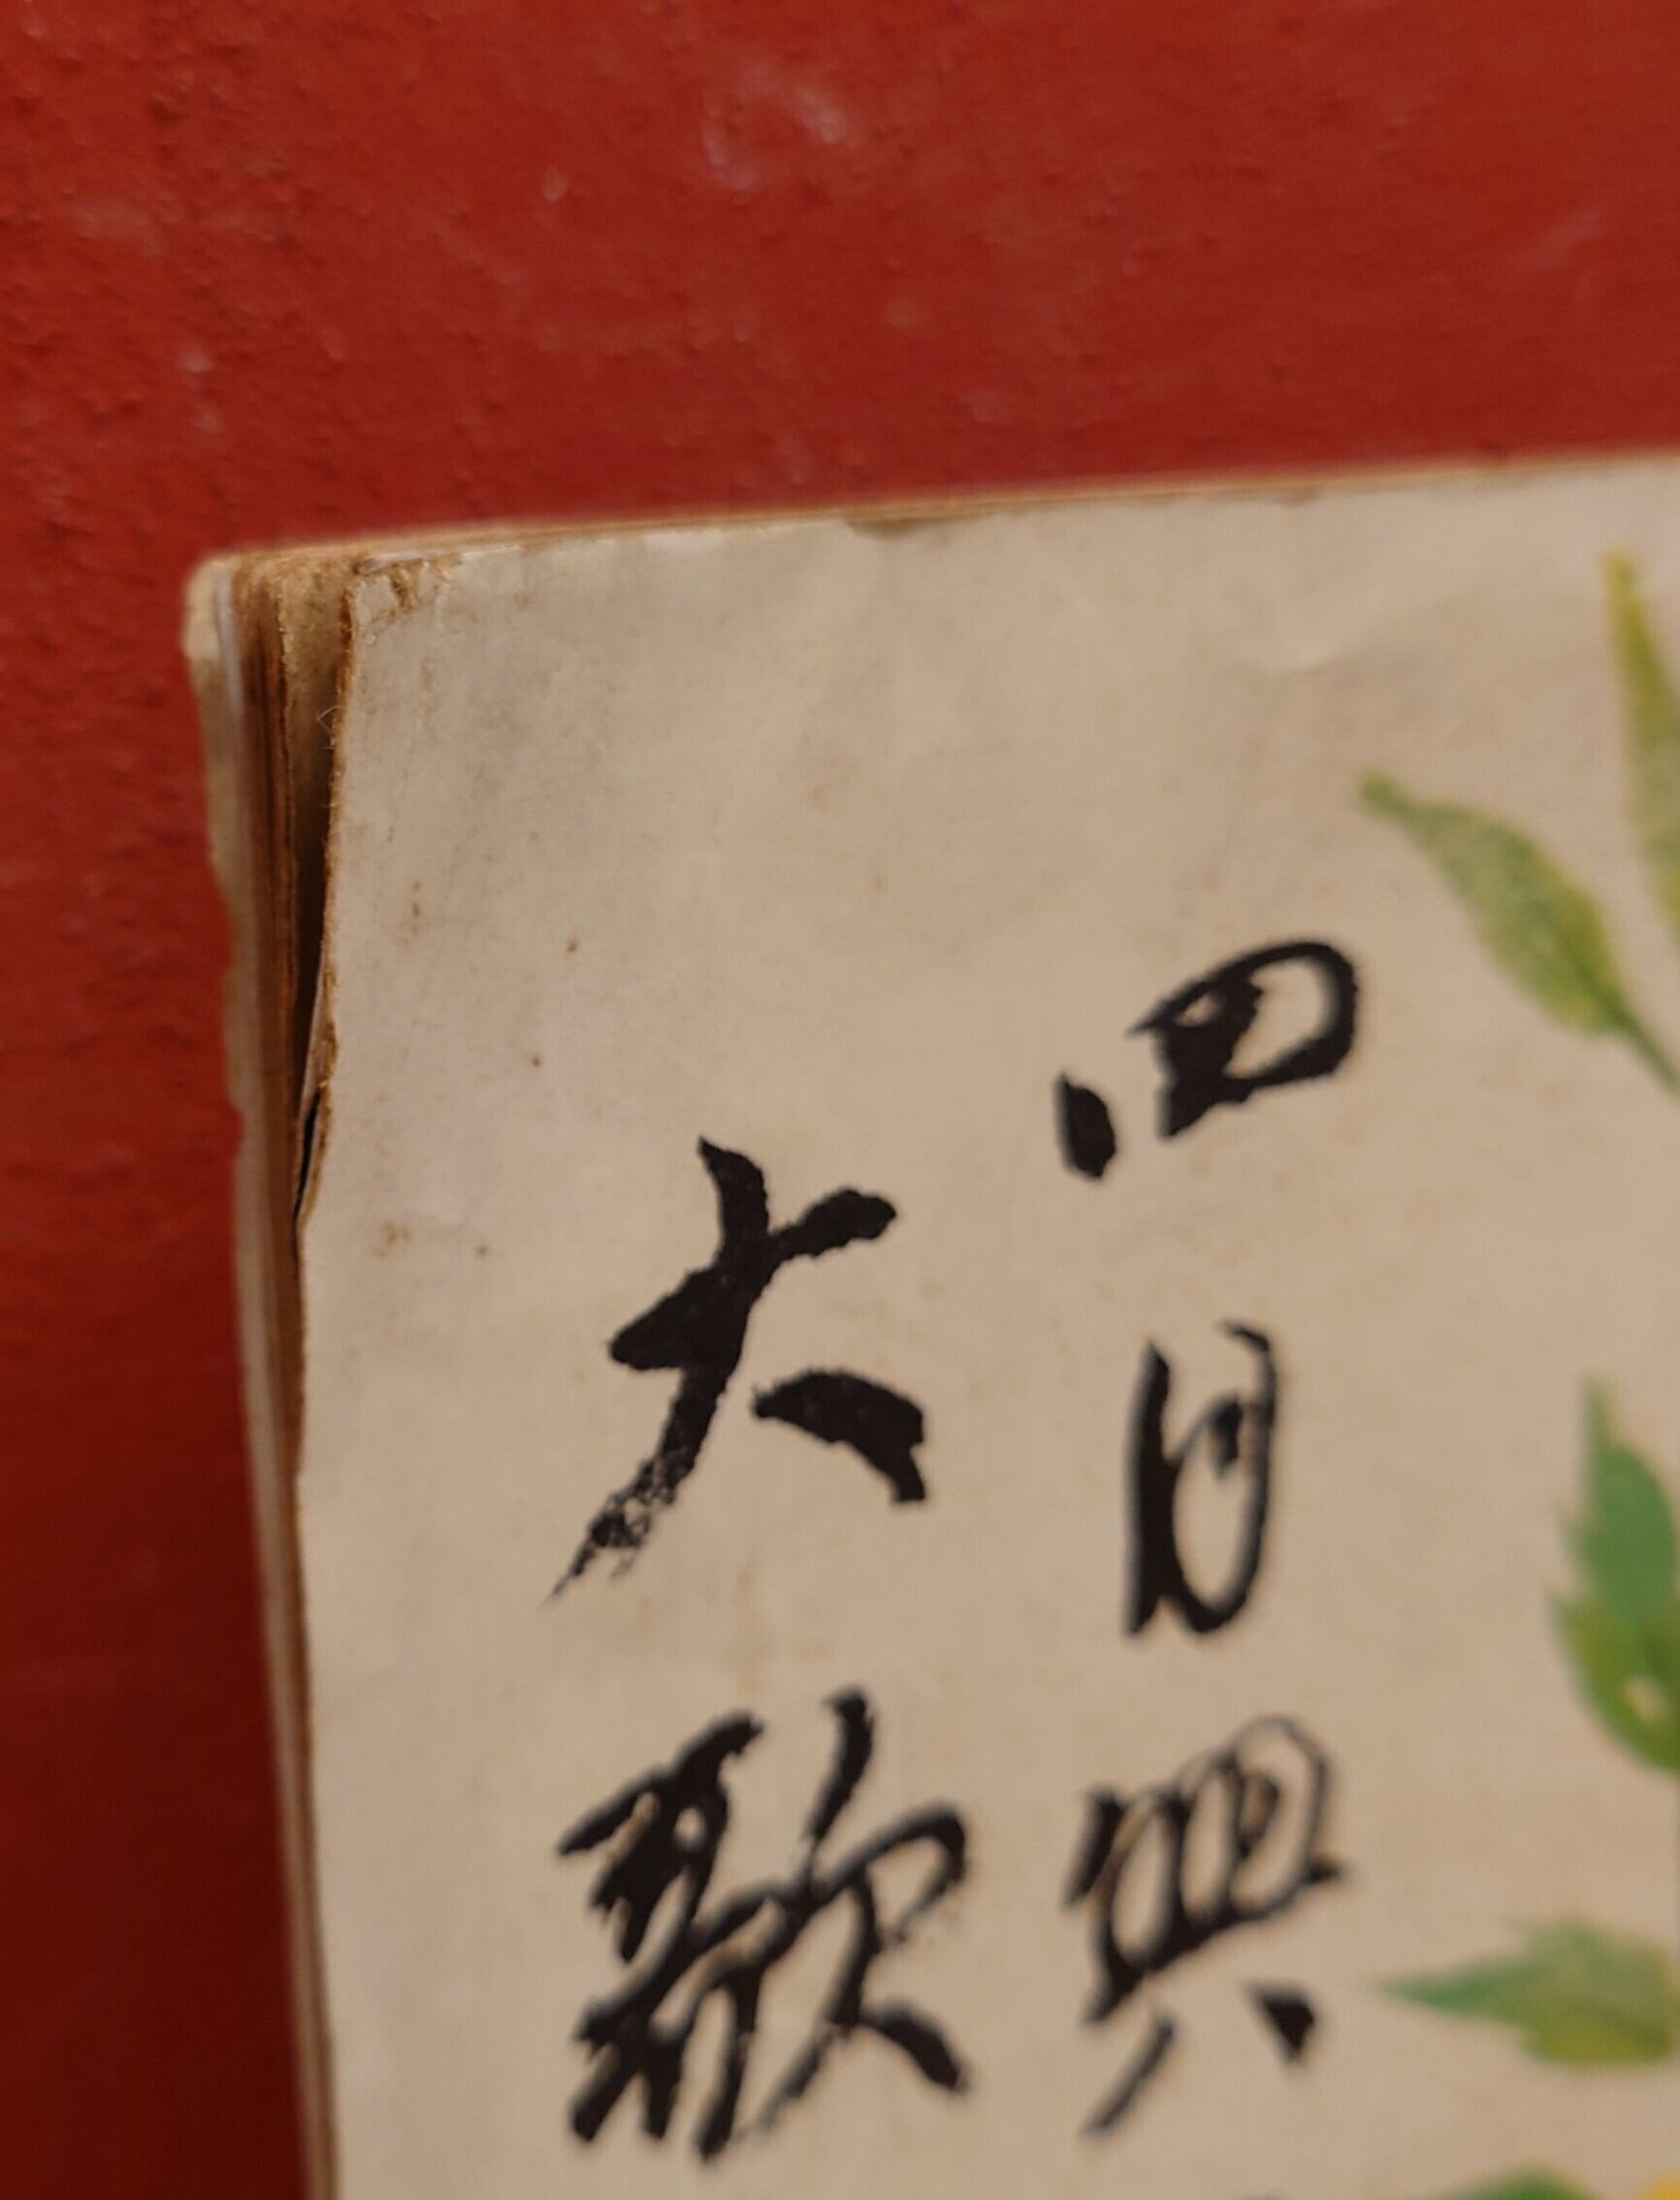 四月興
大歌